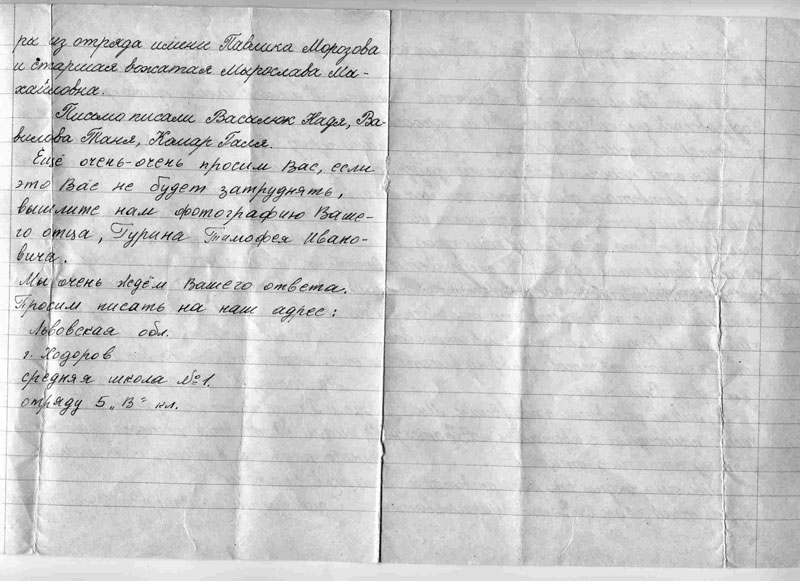 ры из отряда имени Павлика Морозова
и старшая вожатая Мырослава Ми-
хайловна.
Письмо писали Василюк Надя, Ва-
вилова Таня, Комар Галя.
Ещё очень-очень просим Вас, если
это Вас не будет затруднять,
вышлите нам фотографию Ваше-
го отца, Гурина Тимофея Ивано-
вича.
Мы очень ждём Вашего ответа.
Просим писать на наш адрес:
Львовская обл.
г. Ходоров
средняя школа №1.
отряду 5 „В" кл.